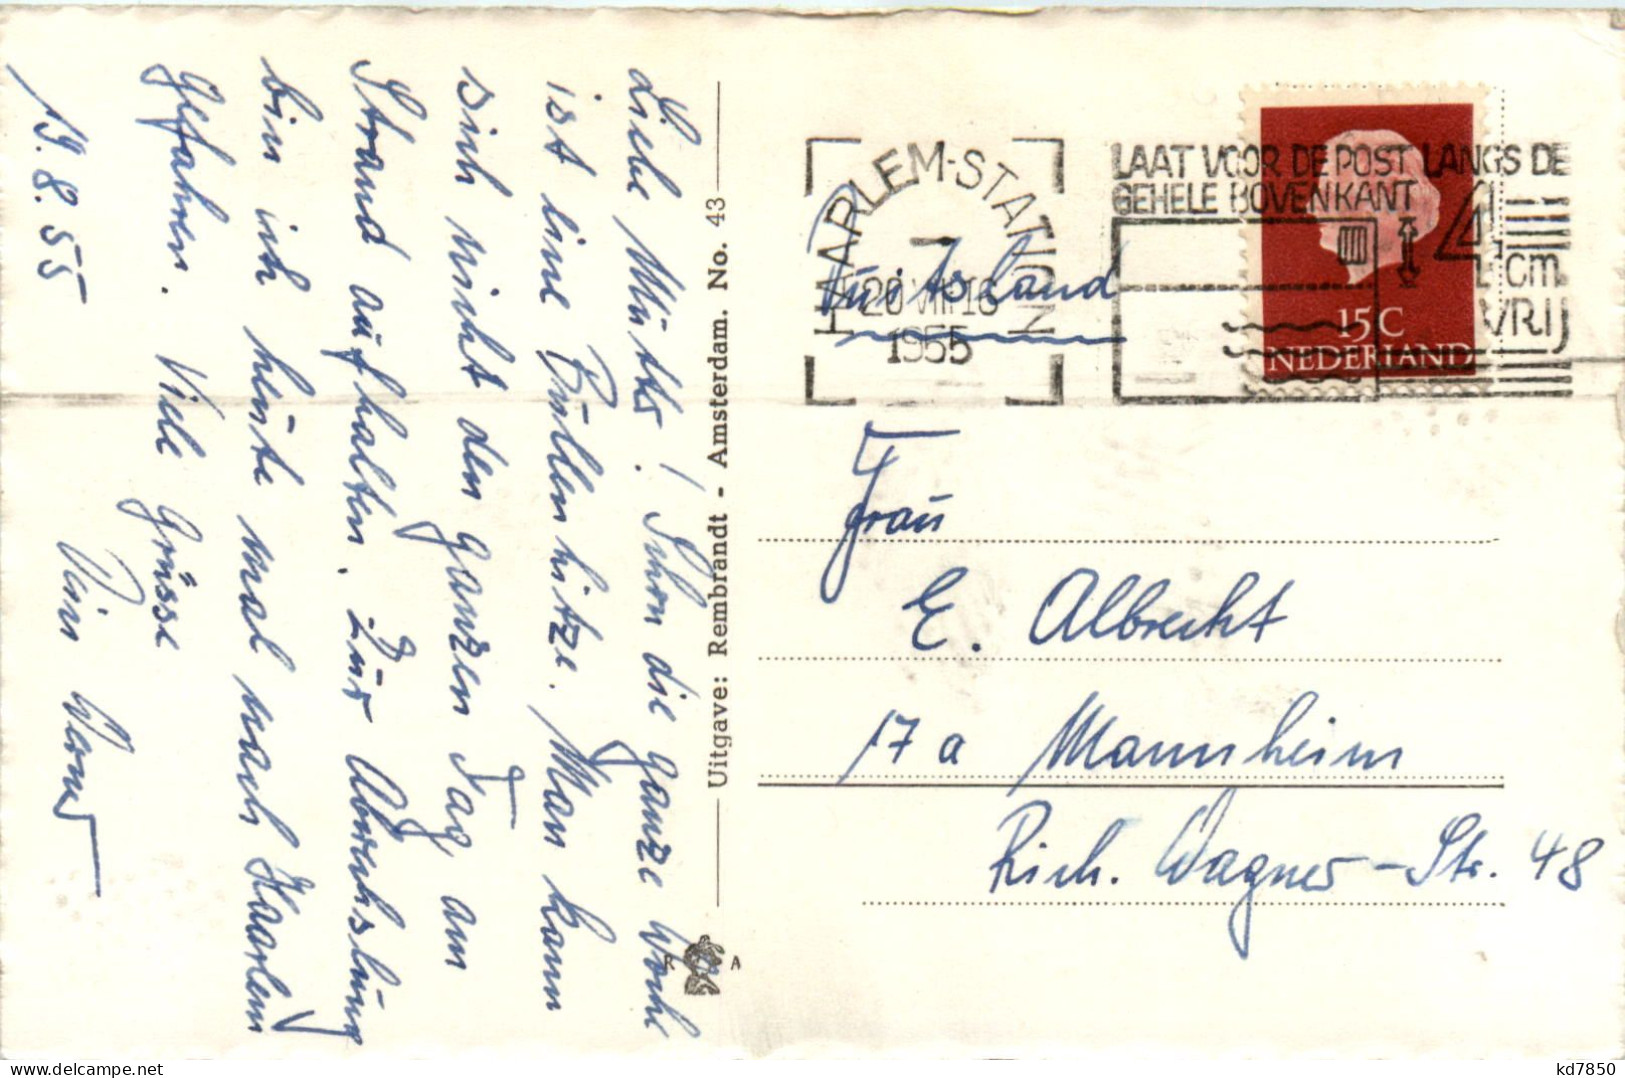 Liebe Mutter! Schon die ganze Woche
ist eine Bullenhitze. Man kann
sich nicht den ganzen Tag am
Strand aufhalten. Zur Abwechslung
bin ich heute mal nach Haarlem
gefahren. Viele Grüsse
Dein Werner
19.8.55
Uitgave: Rembrandt - Amsterdam. No. 43
R A
HAARLEM-STATION
20 VIII 16
1955
LAAT VOOR DE POST LANGS DE
GEHELE BOVENKANT 4
cm
VRIJ
15C
NEDERLAND
Duitsland
Frau
E. Albrecht
17a Mannheim
Rich. Wagner-Str. 48
kd7850